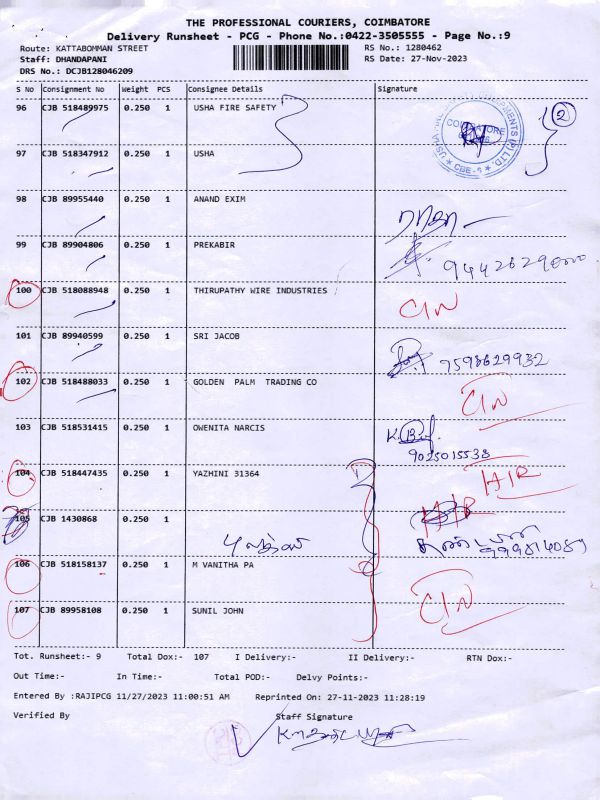 THE PROFESSIONAL COURIERS, COIMBATORE
Delivery Runsheet - PCG - Phone No.:0422-3505555 - Page No.:9
Route: KATTABOMMAN STREET RS No.: 1280462
Staff: DHANDAPANI RS Date: 27-Nov-2023
DRS No.: DCJB128046209
S No Consignment No Weight PCS Consignee Details Signature
96 CJB 518489975 0.250 1 USHA FIRE SAFETY
COIMBATORE
CBE-
2
97 CJB 518347912 0.250 1 USHA
98 CJB 89955440 0.250 1 ANAND EXIM
99 CJB 89904806 0.250 1 PREKABIR
100 CJB 518088948 0.250 1 THIRUPATHY WIRE INDUSTRIES
CIN
101 CJB 89940599 0.250 1 SRI JACOB
9598629932
102 CJB 518488033 0.250 1 GOLDEN PALM TRADING CO
CIN
103 CJB 518531415 0.250 1 OWENITA NARCIS
9025015538
104 CJB 518447435 0.250 1 YAZHINI 31364
HIR
105 CJB 1430868 0.250 1
106 CJB 518158137 0.250 1 M VANITHA PA
107 CJB 89958108 0.250 1 SUNIL JOHN
CIN
Tot. Runsheet:- 9 Total Dox:- 107 I Delivery:- II Delivery:- RTN Dox:-
Out Time:- In Time:- Total POD:- Delvy Points:-
Entered By :RAJIPCG 11/27/2023 11:00:51 AM Reprinted On: 27-11-2023 11:28:19
Verified By Staff Signature